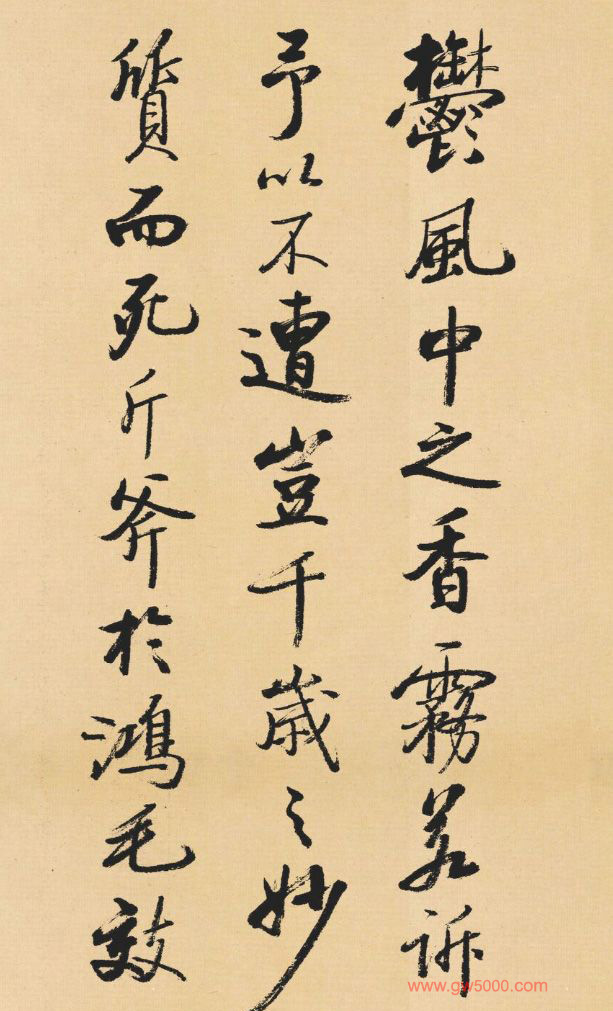 鬱風中之香霧若訴
予以不遭豈千歲之妙
質而死斤斧於鴻毛效
www.gw5000.com